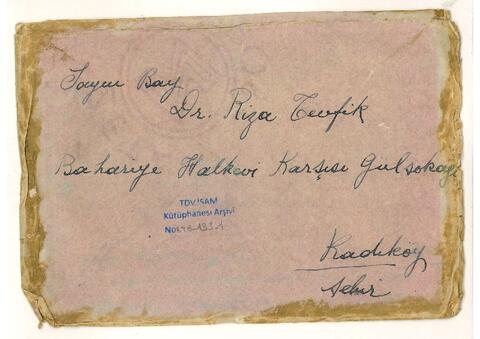 Sayın Bay
Dr. Riza Tevfik
Bahariye Halkevi Karşısı Gulsokağı
TDV İSAM
Kütüphanesi Arşivi
No
Kadıköy
Şehir